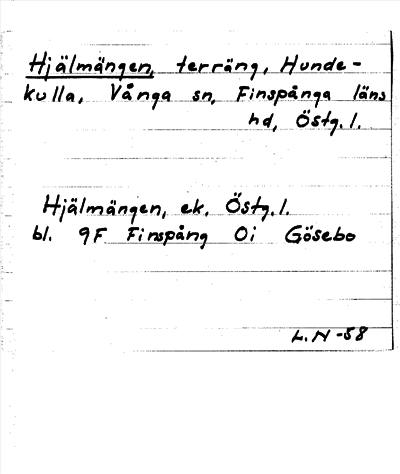 Hjälmängen, terräng, Hunde-
kulla, Vånga sn, Finspånga läns
hd, Östg.l.
Hjälmängen, ek. Östg.l.
bl. 9F Finspång 0i Gösebo
L.N-58